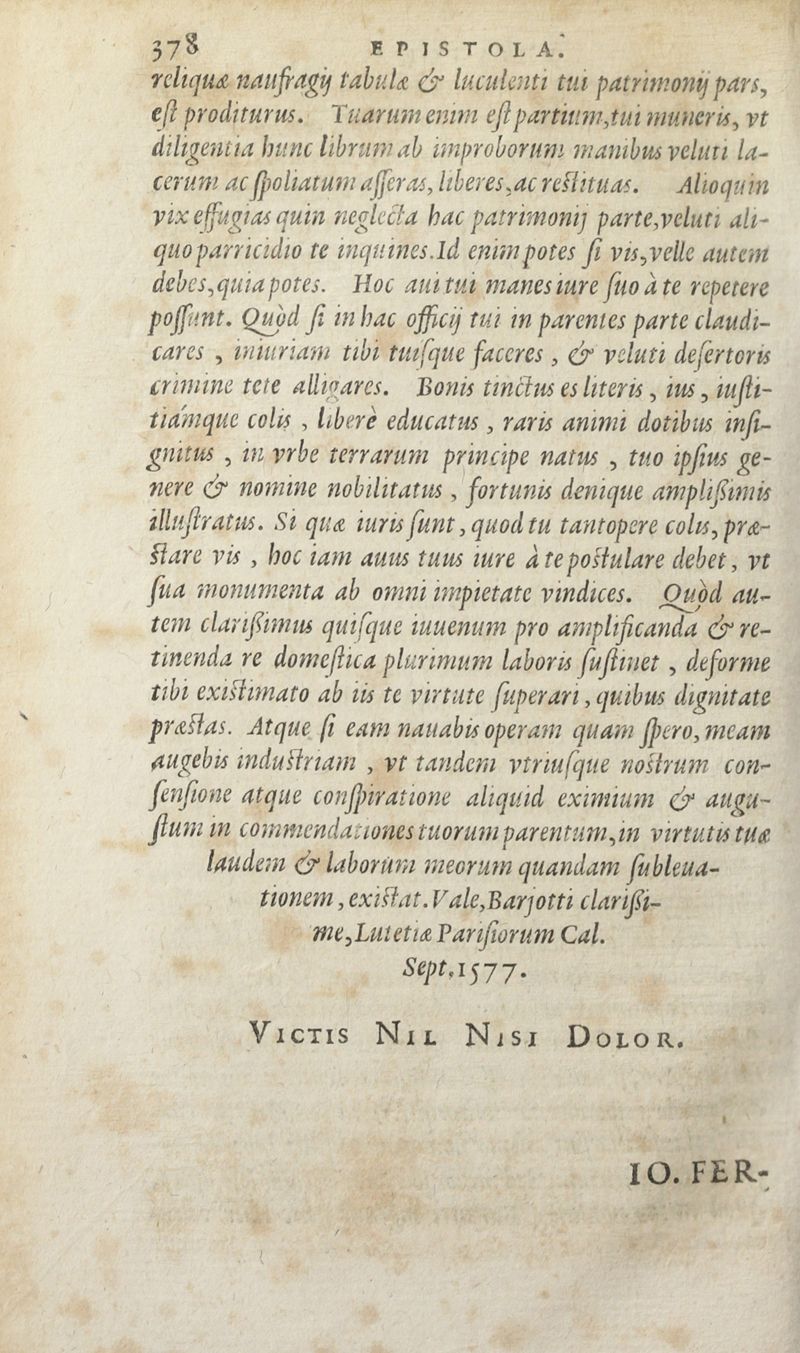 378 EPISTOLA.
reliquæ naufragij tabulæ & luculenti tui patrimonij pars,
est proditurus. Tuarum enim est partium, tui muneris, vt
diligentia hunc librum ab improborum manibus veluti la-
cerum ac spoliatum asseras, liberes, ac restituas. Alioquin
vix effugias quin neglecta hac patrimonij parte, veluti ali-
quo parricidio te inquines. Id enim potes si vis, velle autem
debes, quia potes. Hoc aui tui manes iure suo à te repetere
possunt. Quòd si in hac officij tui in parentes parte claudi-
cares, iniuriam tibi tuisque faceres, & veluti desertoris
crimine tete alligares. Bonis tinctus es literis, ius, iusti-
tiámque colis, liberè educatus, raris animi dotibus insi-
gnitus, in vrbe terrarum principe natus, tuo ipsius ge-
nere & nomine nobilitatus, fortunis denique amplissimis
illustratus. Si quæ iuris sunt, quod tu tantopere colis, præ-
stare vis, hoc iam auus tuus iure à te postulare debet, vt
sua monumenta ab omni impietate vindices. Quòd au-
tem clarissimus quisque iuuenum pro amplificanda & re-
tinenda re domestica plurimum laboris sustinet, deforme
tibi existimato ab iis te virtute superari, quibus dignitate
præstas. Atque si eam nauabis operam quam spero, meam
augebis industriam, vt tandem vtriusque nostrum con-
sensione atque conspiratione aliquid eximium & augu-
stum in commendationes tuorum parentum, in virtutis tuæ
laudem & laborum meorum quandam subleua-
tionem, existat. Vale, Barjotti clarissi-
me, Lutetiæ Parisiorum Cal.
Sept. 1577.
VICTIS NIL NISI DOLOR.
IO. FER-